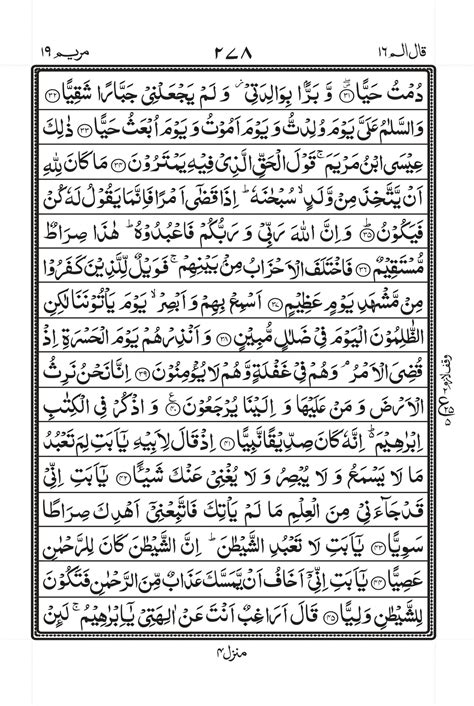 قال الم ١٦ ٢٧٨ مريم ١٩
دُمْتُ حَيًّا ۝٣١ وَّ بَرًّۢا بِوَالِدَتِيْ ؗ وَ لَمْ يَجْعَلْنِيْ جَبَّارًا شَقِيًّا ۝٣٢
وَالسَّلٰمُ عَلَيَّ يَوْمَ وُلِدْتُّ وَ يَوْمَ اَمُوْتُ وَ يَوْمَ اُبْعَثُ حَيًّا ۝٣٣ ذٰلِكَ
عِيْسَى ابْنُ مَرْيَمَ ۚ قَوْلَ الْحَقِّ الَّذِيْ فِيْهِ يَمْتَرُوْنَ ۝٣٤ مَا كَانَ لِلّٰهِ
اَنْ يَّتَّخِذَ مِنْ وَّلَدٍ ۙ سُبْحٰنَهٗ ؕ اِذَا قَضٰۤى اَمْرًا فَاِنَّمَا يَقُوْلُ لَهٗ كُنْ
فَيَكُوْنُ ۝٣٥ وَ اِنَّ اللّٰهَ رَبِّيْ وَ رَبُّكُمْ فَاعْبُدُوْهُ ؕ هٰذَا صِرَاطٌ
مُّسْتَقِيْمٌ ۝٣٦ فَاخْتَلَفَ الْاَحْزَابُ مِنْۢ بَيْنِهِمْ ۚ فَوَيْلٌ لِّلَّذِيْنَ كَفَرُوْا
مِنْ مَّشْهَدِ يَوْمٍ عَظِيْمٍ ۝٣٧ اَسْمِعْ بِهِمْ وَ اَبْصِرْ ۙ يَوْمَ يَاْتُوْنَنَا لٰكِنِ
الظّٰلِمُوْنَ الْيَوْمَ فِيْ ضَلٰلٍ مُّبِيْنٍ ۝٣٨ وَ اَنْذِرْهُمْ يَوْمَ الْحَسْرَةِ اِذْ
قُضِيَ الْاَمْرُ ۘ وَ هُمْ فِيْ غَفْلَةٍ وَّ هُمْ لَا يُؤْمِنُوْنَ ۝٣٩ اِنَّا نَحْنُ نَرِثُ
الْاَرْضَ وَ مَنْ عَلَيْهَا وَ اِلَيْنَا يُرْجَعُوْنَ ۝٤٠ وَ اذْكُرْ فِي الْكِتٰبِ
اِبْرٰهِيْمَ ؕ اِنَّهٗ كَانَ صِدِّيْقًا نَّبِيًّا ۝٤١ اِذْ قَالَ لِاَبِيْهِ يٰۤاَبَتِ لِمَ تَعْبُدُ
مَا لَا يَسْمَعُ وَ لَا يُبْصِرُ وَ لَا يُغْنِيْ عَنْكَ شَيْـًٔا ۝٤٢ يٰۤاَبَتِ اِنِّيْ
قَدْ جَآءَنِيْ مِنَ الْعِلْمِ مَا لَمْ يَاْتِكَ فَاتَّبِعْنِيْۤ اَهْدِكَ صِرَاطًا
سَوِيًّا ۝٤٣ يٰۤاَبَتِ لَا تَعْبُدِ الشَّيْطٰنَ ؕ اِنَّ الشَّيْطٰنَ كَانَ لِلرَّحْمٰنِ
عَصِيًّا ۝٤٤ يٰۤاَبَتِ اِنِّيْۤ اَخَافُ اَنْ يَّمَسَّكَ عَذَابٌ مِّنَ الرَّحْمٰنِ فَتَكُوْنَ
لِلشَّيْطٰنِ وَلِيًّا ۝٤٥ قَالَ اَرَاغِبٌ اَنْتَ عَنْ اٰلِهَتِيْ يٰۤاِبْرٰهِيْمُ ۚ لَىِٕنْ
منزل ٤